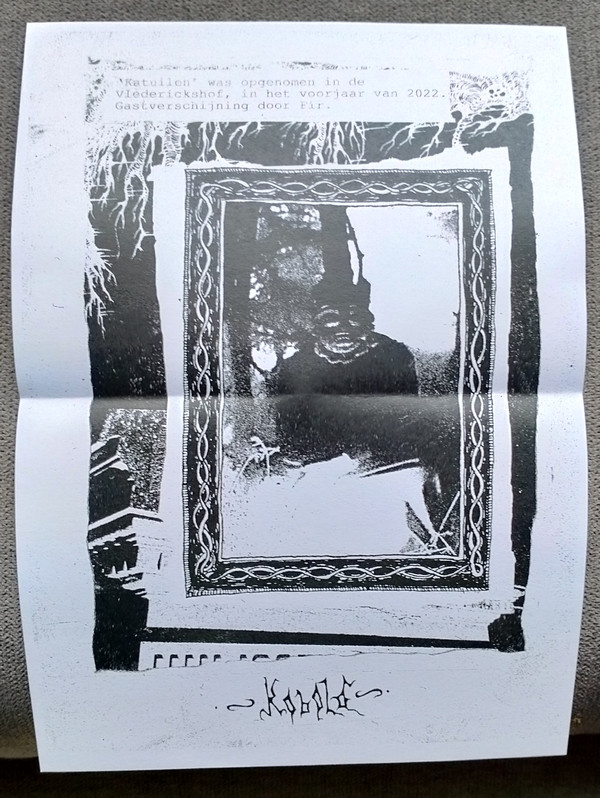 'Ketollen' was opgenomen in de
Vlederickshof, in het voorjaar van 2022.
Gastverschijning door Fir.
Kobold